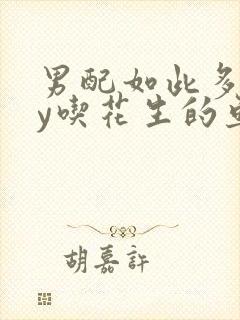 男配如此多
y喫花生的
胡嘉許